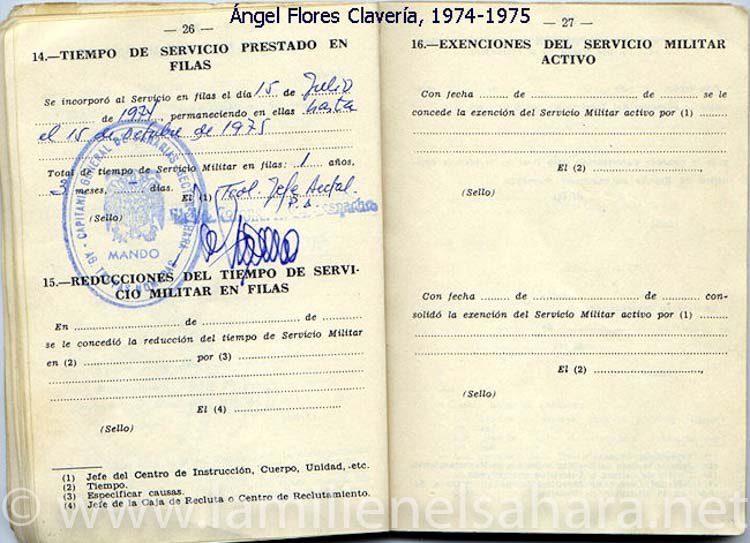 Ángel Flores Clavería, 1974-1975
— 26 —
14.—TIEMPO DE SERVICIO PRESTADO EN
FILAS
Se incorporó al Servicio en filas el día 15 de Julio
de 1974, permaneciendo en ellas hasta
el 15 de Octubre de 1975
Total de tiempo de Servicio Militar en filas: 1 años,
3 meses, — días.
El (1) Tcol. Jefe Acctal.
P. A.
(Sello)
CAPITANIA GENERAL DE CANARIAS
MANDO
15.—REDUCCIONES DEL TIEMPO DE SERVI-
CIO MILITAR EN FILAS
En ........ de ........ de ........
se le concedió la reducción del tiempo de Servicio Militar
en (2) ........ por (3) ........
El (4) ........
(Sello)
(1) Jefe del Centro de Instrucción, Cuerpo, Unidad, etc.
(2) Tiempo.
(3) Especificar causas.
(4) Jefe de la Caja de Recluta o Centro de Reclutamiento.
— 27 —
16.—EXENCIONES DEL SERVICIO MILITAR
ACTIVO
Con fecha ........ de ........ de ........ se le
concede la exención del Servicio Militar activo por (1) ........
El (2) ........,
(Sello)
Con fecha ........ de ........ de ........ con-
solidó la exención del Servicio Militar activo por (1) ........
El (2) ........,
(Sello)
© www.lamilienelsahara.net